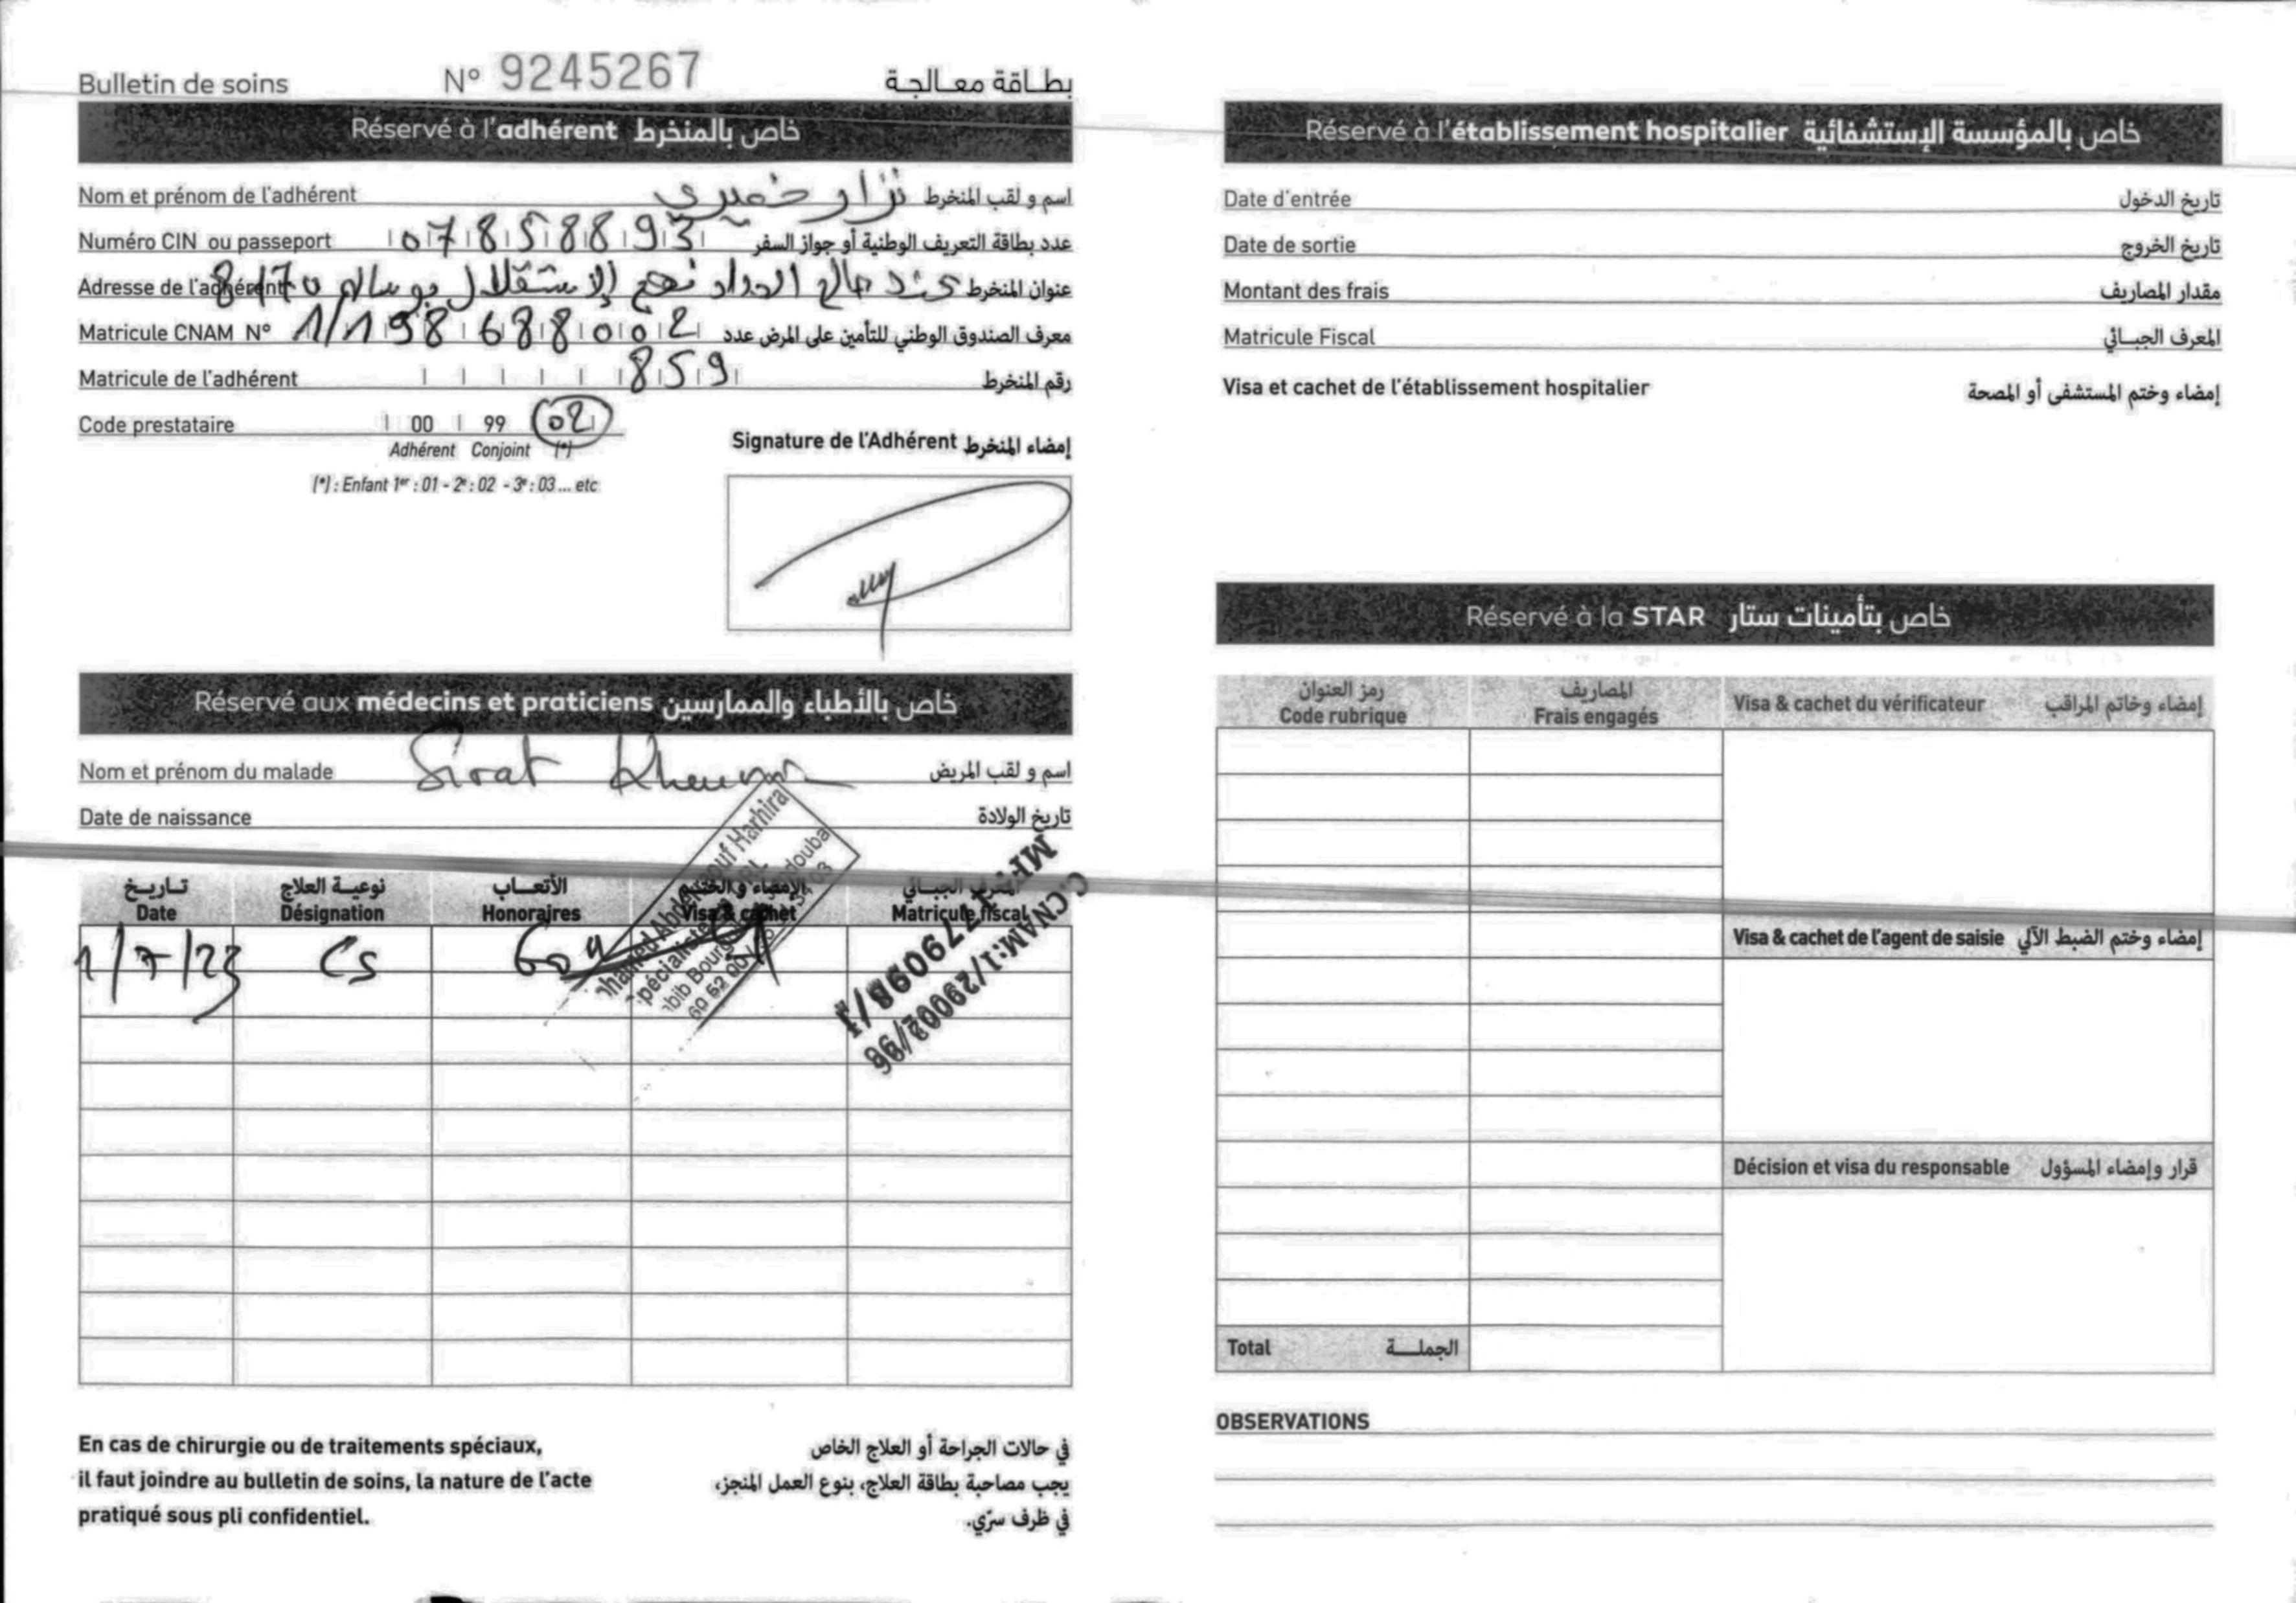 Bulletin de soins N° 9245267 بطاقة معالجة
Réservé à l'adhérent خاص بالمنخرط
Nom et prénom de l'adhérent نزار خميري اسم و لقب المنخرط
Numéro CIN ou passeport 07858893 عدد بطاقة التعريف الوطنية أو جواز السفر
Adresse de l'adhérent عند صالح الحداد نهج الإستقلال بوسالم 8170 عنوان المنخرط
Matricule CNAM N° 1/198688002 معرف الصندوق الوطني للتأمين على المرض عدد
Matricule de l'adhérent 859 رقم المنخرط
Code prestataire 00 99 02
Adhérent Conjoint (*)
(*) : Enfant 1er : 01 - 2e : 02 - 3e : 03 ... etc
Signature de l'Adhérent إمضاء المنخرط
Réservé aux médecins et praticiens خاص بالأطباء والممارسين
Nom et prénom du malade Sirat اسم و لقب المريض
Date de naissance تاريخ الولادة
تاريخ نوعية العلاج الأتعاب الإمضاء و الختم المعرف الجبائي
Date Désignation Honoraires Visa & cachet Matricule fiscal
1/7/23 Cs
Harhira
C.CNAM:1/29002/96
En cas de chirurgie ou de traitements spéciaux,
il faut joindre au bulletin de soins, la nature de l'acte
pratiqué sous pli confidentiel.
في حالات الجراحة أو العلاج الخاص
يجب مصاحبة بطاقة العلاج، بنوع العمل المنجز،
في ظرف سرّي.
Réservé à l'établissement hospitalier خاص بالمؤسسة الإستشفائية
Date d'entrée تاريخ الدخول
Date de sortie تاريخ الخروج
Montant des frais مقدار المصاريف
Matricule Fiscal المعرف الجبائي
Visa et cachet de l'établissement hospitalier إمضاء وختم المستشفى أو المصحة
Réservé à la STAR خاص بتأمينات ستار
رمز العنوان المصاريف
Code rubrique Frais engagés Visa & cachet du vérificateur إمضاء وخاتم المراقب
Visa & cachet de l'agent de saisie إمضاء وختم الضبط الآلي
Décision et visa du responsable قرار وإمضاء المسؤول
Total الجملة
OBSERVATIONS